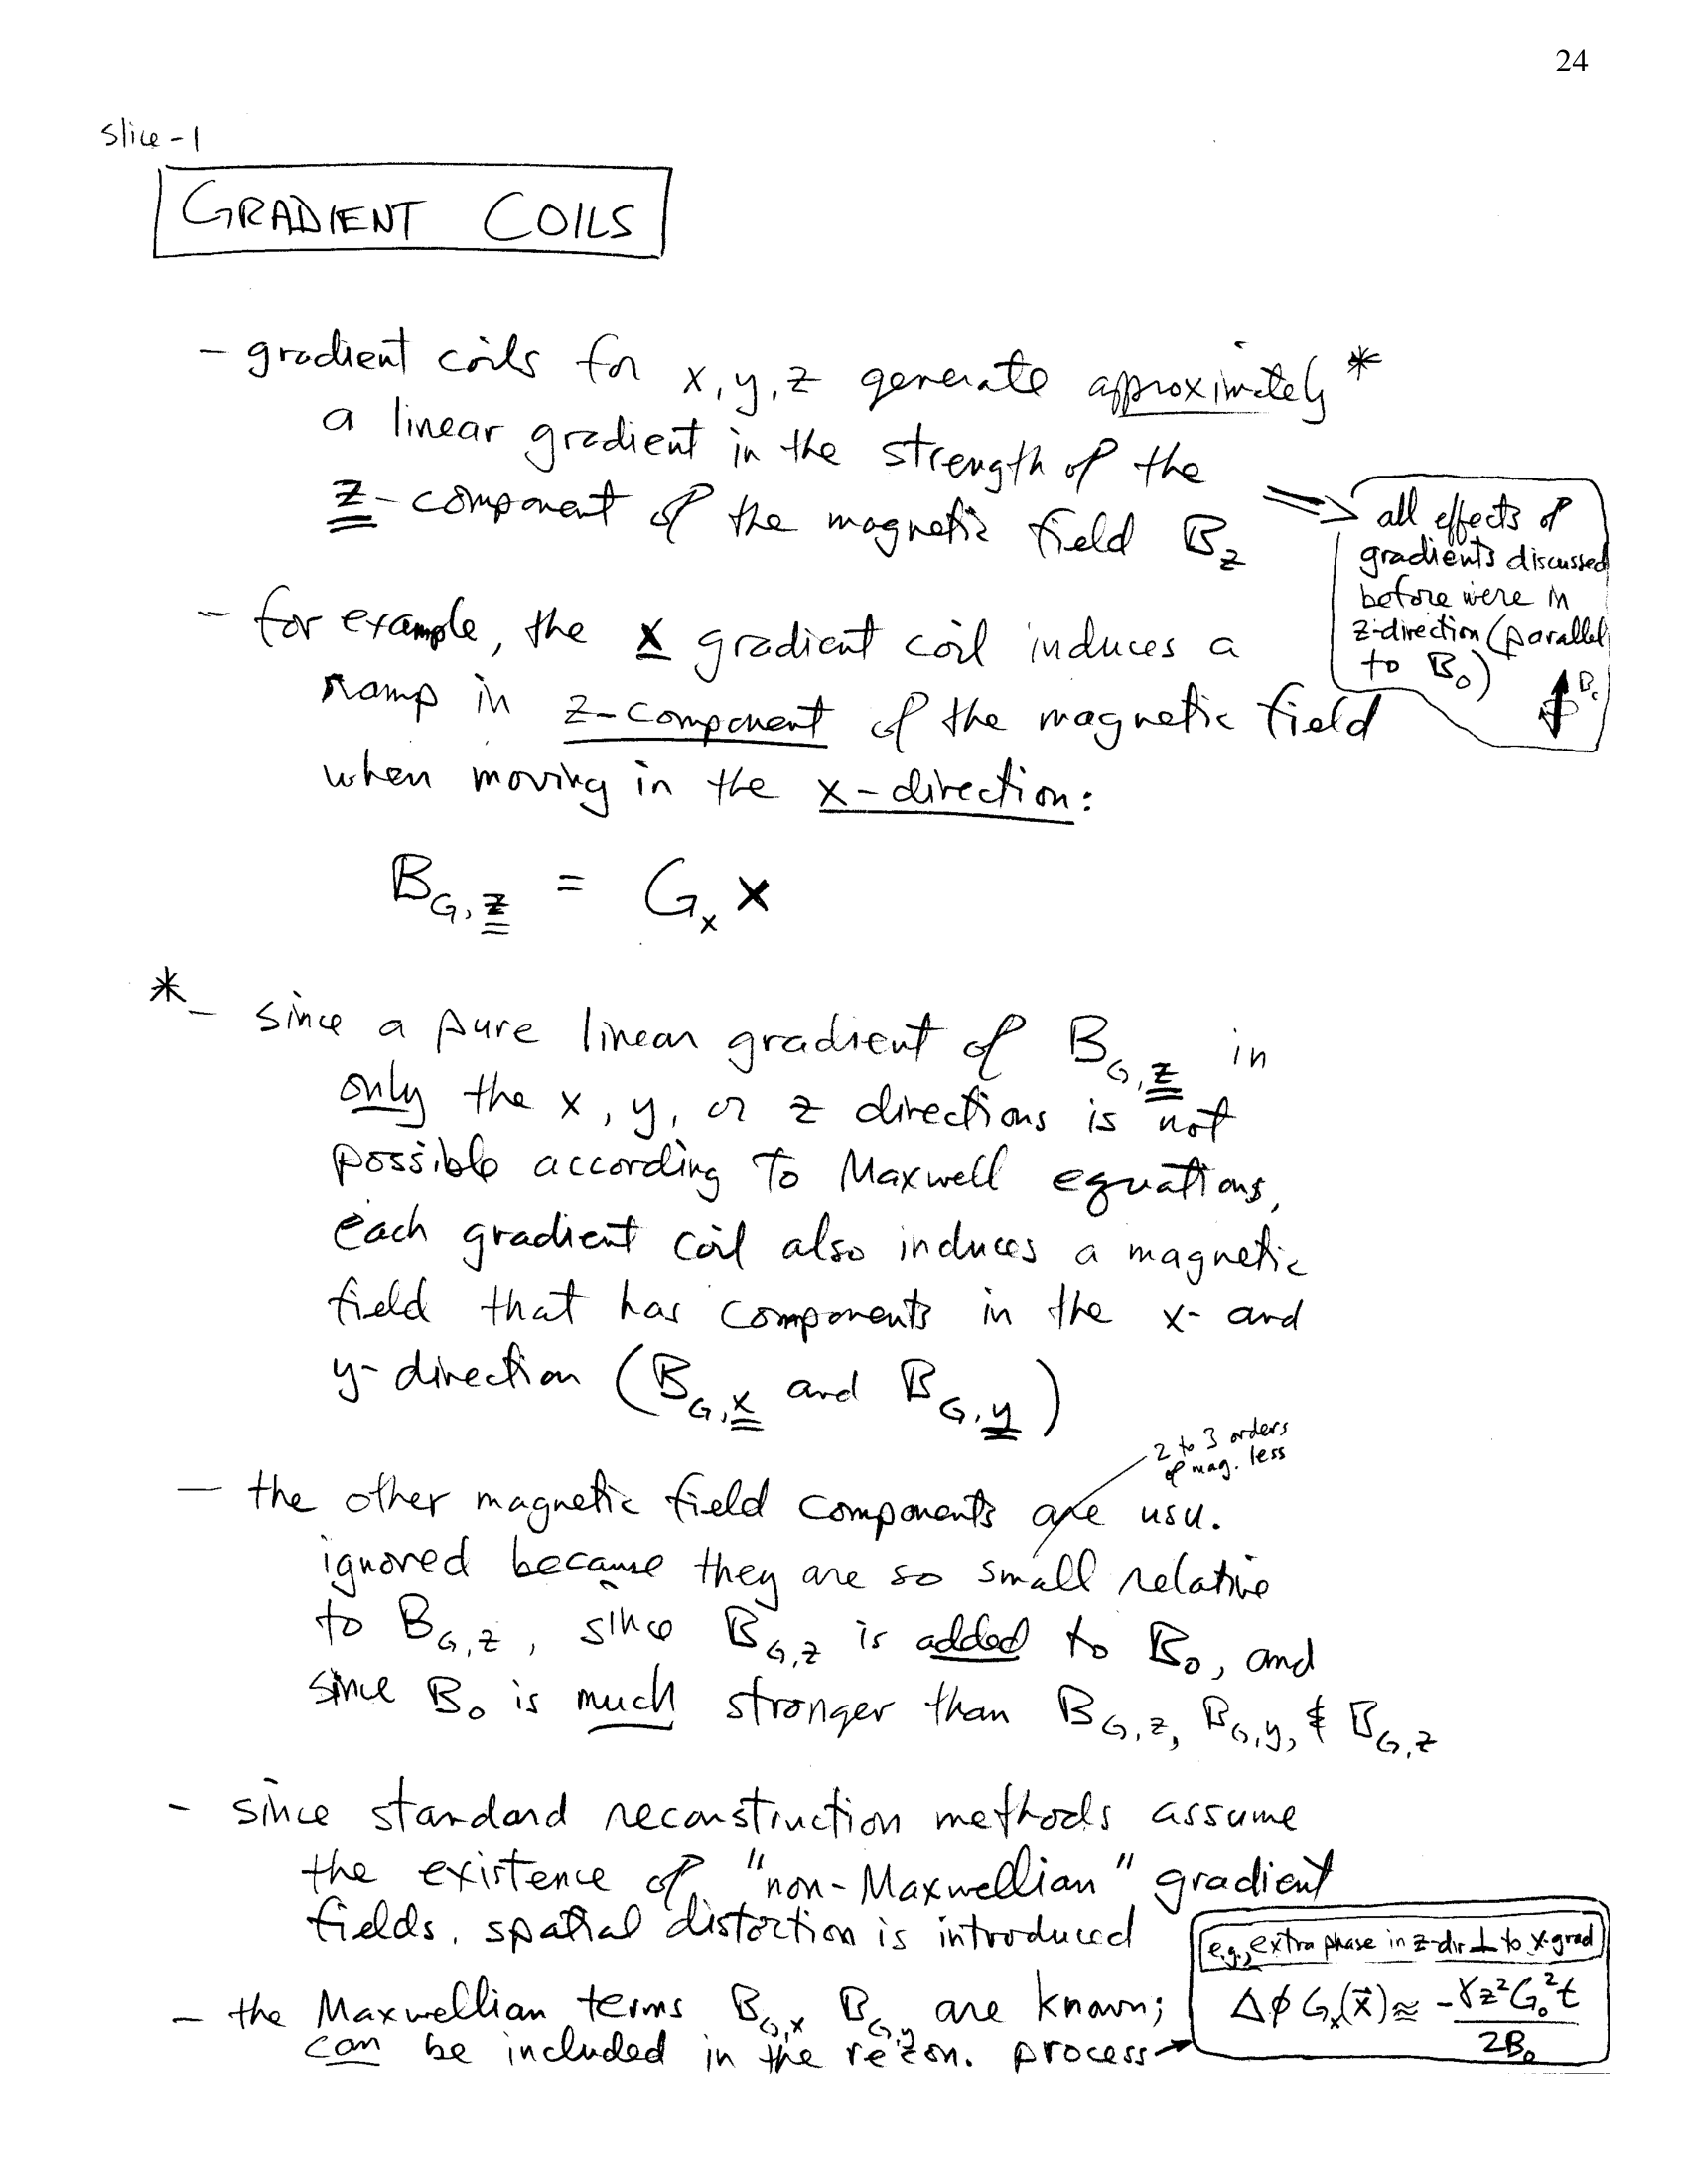 24
slice-1
GRADIENT COILS
- gradient coils for x, y, z generate approximately *
a linear gradient in the strength of the
z-component of the magnetic field B_z
⇒ all effects of
gradients discussed
before were in
z-direction (parallel
to B_0)
B_0
- for example, the x gradient coil induces a
ramp in z-component of the magnetic field
when moving in the x-direction:
B_G,z = G_x x
* - since a pure linear gradient of B_G,z in
only the x, y, or z directions is not
possible according to Maxwell equations,
each gradient coil also induces a magnetic
field that has components in the x- and
y-direction (B_G,x and B_G,y)
2 to 3 orders
of mag. less
- the other magnetic field components are usu.
ignored because they are so small relative
to B_G,z, since B_G,z is added to B_0, and
since B_0 is much stronger than B_G,z, B_G,y, & B_G,z
- since standard reconstruction methods assume
the existence of "non-Maxwellian" gradient
fields, spatial distortion is introduced
- the Maxwellian terms B_G,x B_G,y are known;
can be included in the recon. process →
e.g., extra phase in z-dir ⊥ to x-grad
Δϕ G_x(x⃗) ≈ -γz²G_0²t
2B_0